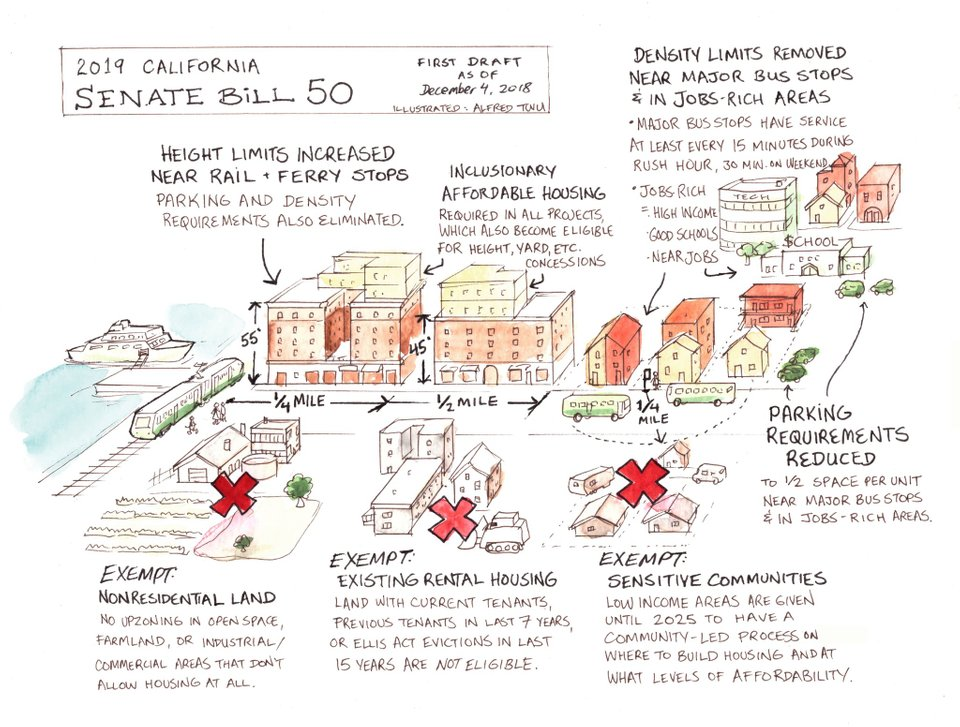 2019 CALIFORNIA
SENATE BILL 50
FIRST DRAFT
AS OF
December 4, 2018
ILLUSTRATED: ALFRED TWU
HEIGHT LIMITS INCREASED
NEAR RAIL + FERRY STOPS
PARKING AND DENSITY
REQUIREMENTS ALSO ELIMINATED.
INCLUSIONARY
AFFORDABLE HOUSING
REQUIRED IN ALL PROJECTS,
WHICH ALSO BECOME ELIGIBLE
FOR HEIGHT, YARD, ETC.
CONCESSIONS
DENSITY LIMITS REMOVED
NEAR MAJOR BUS STOPS
& IN JOBS-RICH AREAS
• MAJOR BUS STOPS HAVE SERVICE
AT LEAST EVERY 15 MINUTES DURING
RUSH HOUR, 30 MIN. ON WEEKEND
• JOBS RICH
= HIGH INCOME
· GOOD SCHOOLS
· NEAR JOBS
TECH
SCHOOL
55'
45'
1/4 MILE
1/2 MILE
1/4
MILE
PARKING
REQUIREMENTS
REDUCED
TO 1/2 SPACE PER UNIT
NEAR MAJOR BUS STOPS
& IN JOBS-RICH AREAS.
EXEMPT:
NONRESIDENTIAL LAND
NO UPZONING IN OPEN SPACE,
FARMLAND, OR INDUSTRIAL/
COMMERCIAL AREAS THAT DON'T
ALLOW HOUSING AT ALL.
EXEMPT:
EXISTING RENTAL HOUSING
LAND WITH CURRENT TENANTS,
PREVIOUS TENANTS IN LAST 7 YEARS,
OR ELLIS ACT EVICTIONS IN LAST
15 YEARS ARE NOT ELIGIBLE.
EXEMPT:
SENSITIVE COMMUNITIES
LOW INCOME AREAS ARE GIVEN
UNTIL 2025 TO HAVE A
COMMUNITY-LED PROCESS ON
WHERE TO BUILD HOUSING AND AT
WHAT LEVELS OF AFFORDABILITY.